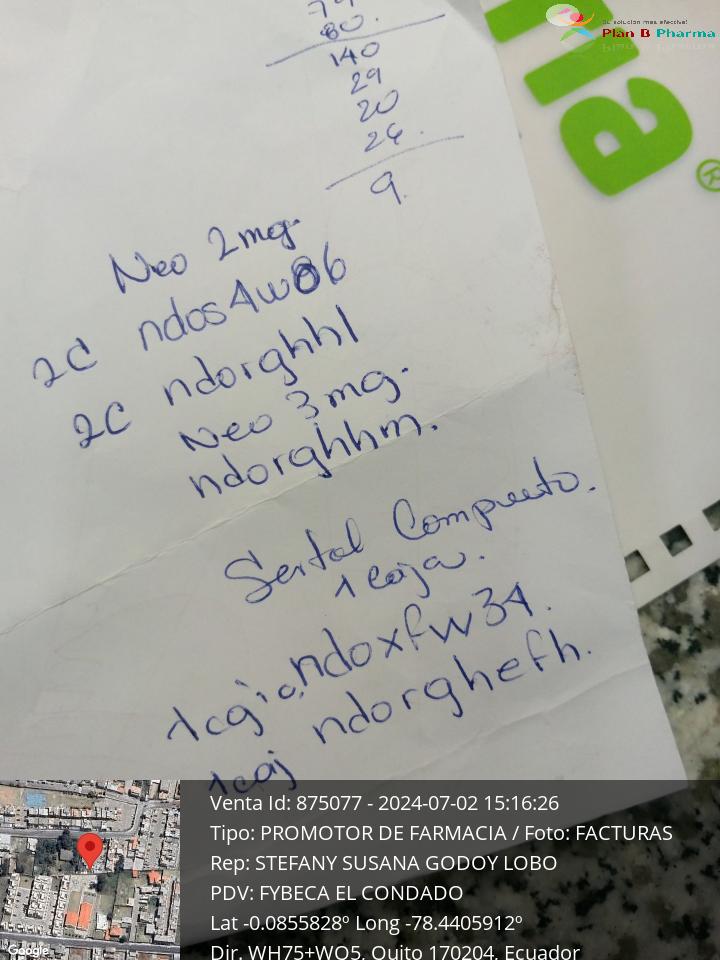 Su solucion mas efectiva!
Plan B Pharma
na
®
80.
140
29
20
26.
9.
Neo 2mg.
2C ndos4w86
2C ndorghhl
Neo 3mg.
ndorghhm.
Sertal Compuesto.
1 caja.
1 caja. ndoxfw34.
1caj ndorghefh.
Google
Venta Id: 875077 - 2024-07-02 15:16:26
Tipo: PROMOTOR DE FARMACIA / Foto: FACTURAS
Rep: STEFANY SUSANA GODOY LOBO
PDV: FYBECA EL CONDADO
Lat -0.0855828º Long -78.4405912º
Dir. WH75+WQ5, Quito 170204, Ecuador